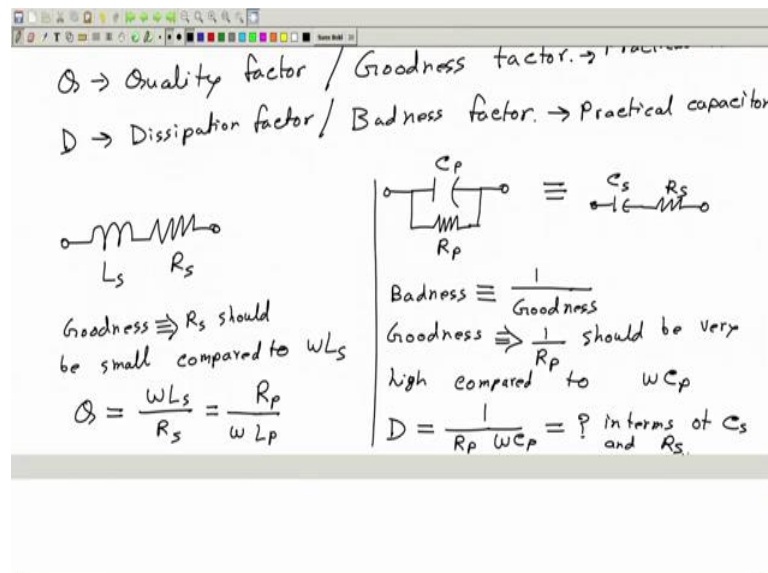 Q → Quality factor / Goodness factor. →
D → Dissipation factor / Badness factor. → Practical capacitor
Ls Rs
Goodness ⇛ Rs should
be small compared to wLs
Q = wLs / Rs = Rp / w Lp
Cp
Rp
≡
Cs Rs
Badness ≡ 1 / Goodness
Goodness ⇛ 1 / Rp should be very
high compared to wCp
D = 1 / Rp wCp = ? in terms of Cs
and Rs.